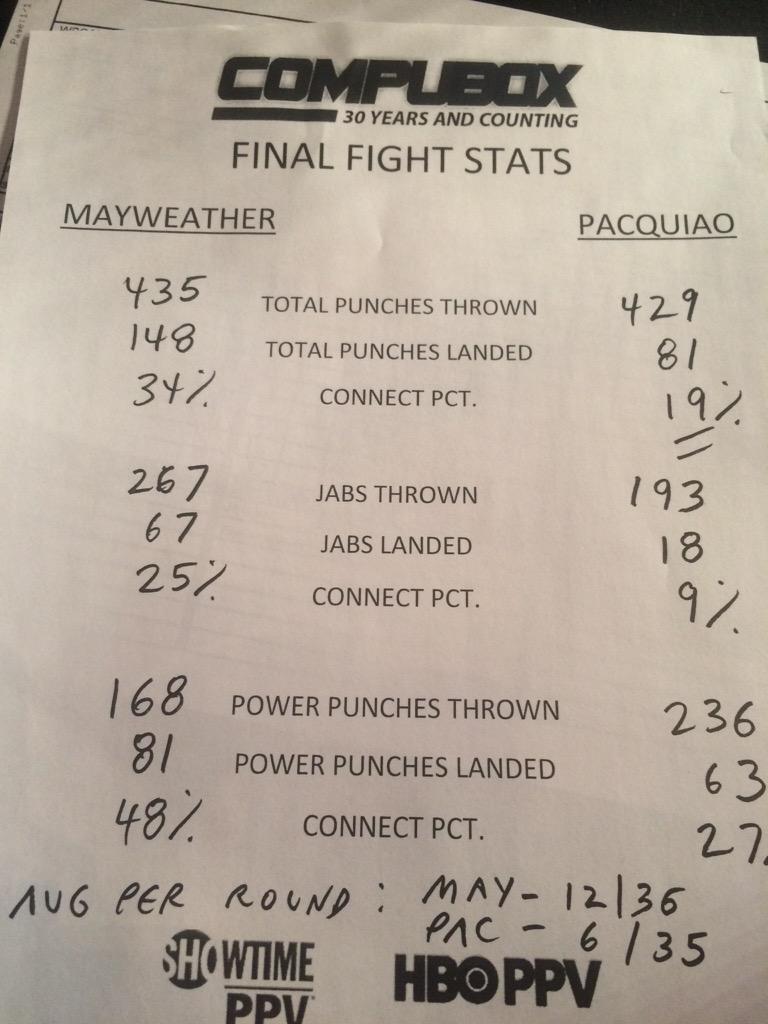 Page:1/1
COMPUBOX
30 YEARS AND COUNTING
FINAL FIGHT STATS
MAYWEATHER PACQUIAO
435 TOTAL PUNCHES THROWN 429
148 TOTAL PUNCHES LANDED 81
34% CONNECT PCT. 19%
267 JABS THROWN 193
67 JABS LANDED 18
25% CONNECT PCT. 9%
168 POWER PUNCHES THROWN 236
81 POWER PUNCHES LANDED 63
48% CONNECT PCT. 27%
AVG PER ROUND: MAY- 12/36
PAC - 6/35
SHOWTIME PPV HBO PPV